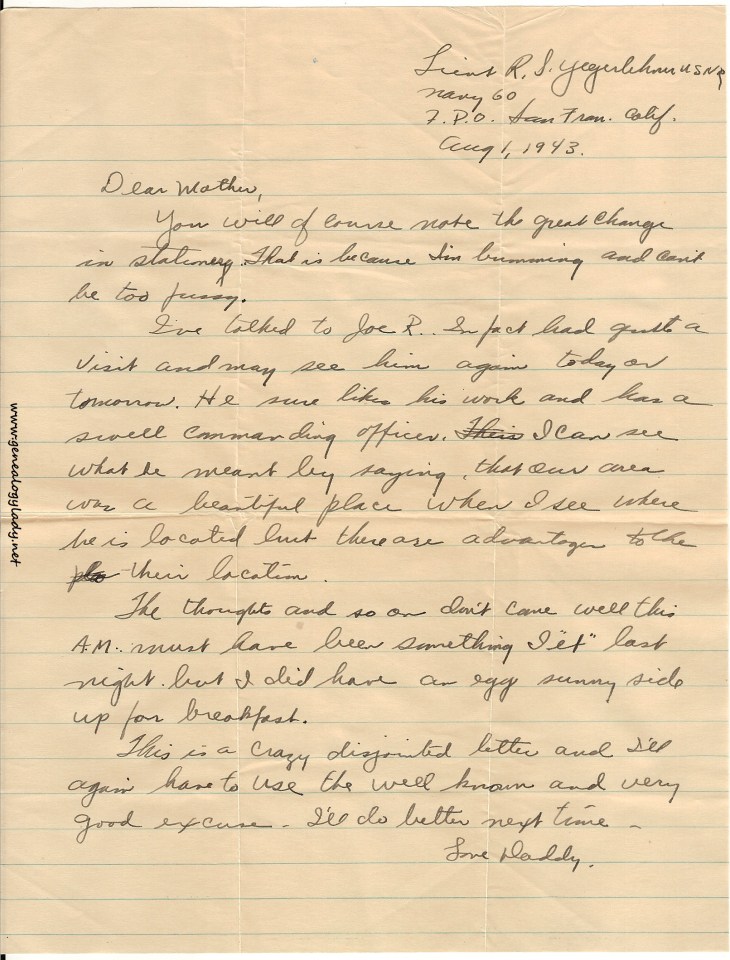 Lieut R. S. Yegerlehner USNR
Navy 60
F.P.O. San Fran. Calif.
Aug 1, 1943.
Dear Mother,
You will of course note the great change
in stationery. That is because I'm bumming and can't
be too fussy.
I've talked to Joe R.. In fact had quite a
visit and may see him again today or
tomorrow. He sure likes his work and has a
swell commanding officer. This I can see
what he meant by saying, that our area
was a beautiful place when I see where
he is located but there are advantages to the
pla their location.
The thoughts and so on don't come well this
A.M.. must have been something I "et" last
night. but I did have an egg sunny side
up for breakfast.
This is a crazy disjointed letter and I'll
again have to use the well known and very
good excuse - I'll do better next time -
Love Daddy.
www.genealogylady.net